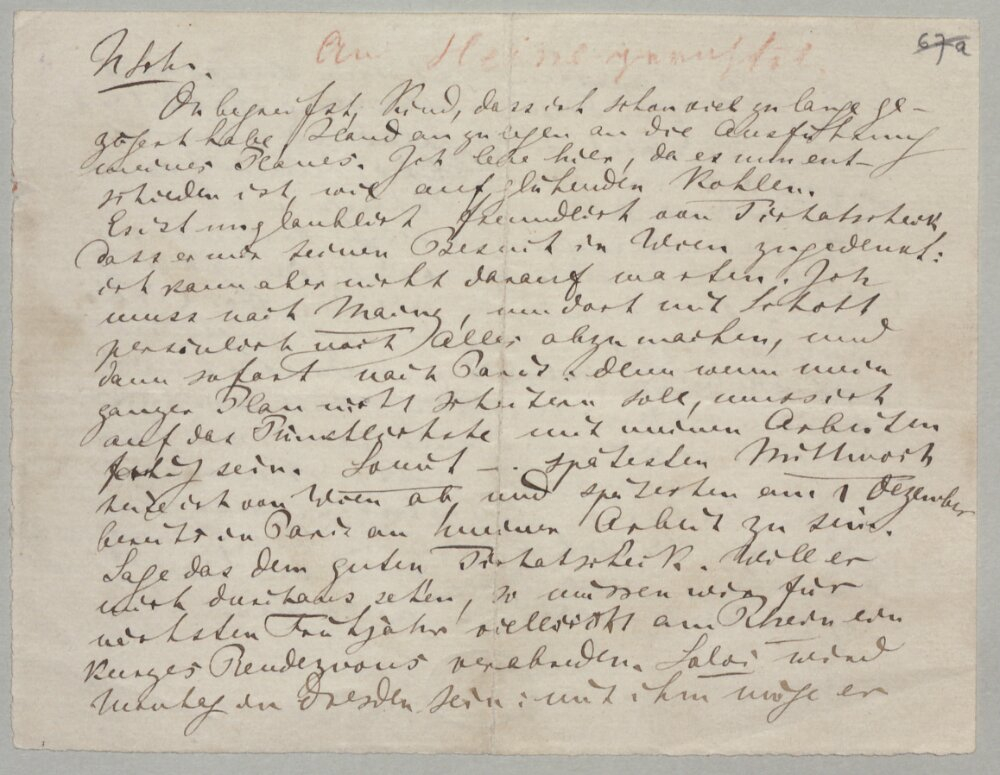 67a
An
NSchr.
Du begreifst, Kind, dass ich schon viel zu lange ge-
zögert habe, Hand anzulegen an die Ausführung
meines Planes. Ich lebe hier, da es nun ent-
schieden ist, wie auf glühenden Kohlen.
Es ist unglaublich freundlich von Tichatscheck
dass er mir seinen Besuch in Wien zugedenkt:
ich kann aber nicht darauf warten. Ich
muss nach Mainz, um dort mit Schott
persönlich noch Alles abzumachen, und
dann sofort nach Paris: denn wenn mein
ganzer Plan nicht scheitern soll, muss ich
auf das Pünktlichste mit meinen Arbeiten
fertig sein. Somit – spätesten Mittwoch
reise ich von Wien ab und spätesten am 1 Dezember
bereits in Paris an meiner Arbeit zu sein.
Sage das dem guten Tichatscheck. Will er
mich durchaus sehen, so müssen wir für
nächsten Frühjahr vielleicht am Rhein ein
kurzes Rendezvous verabreden. wird
Montag in Dresden sein: mit ihm möge er